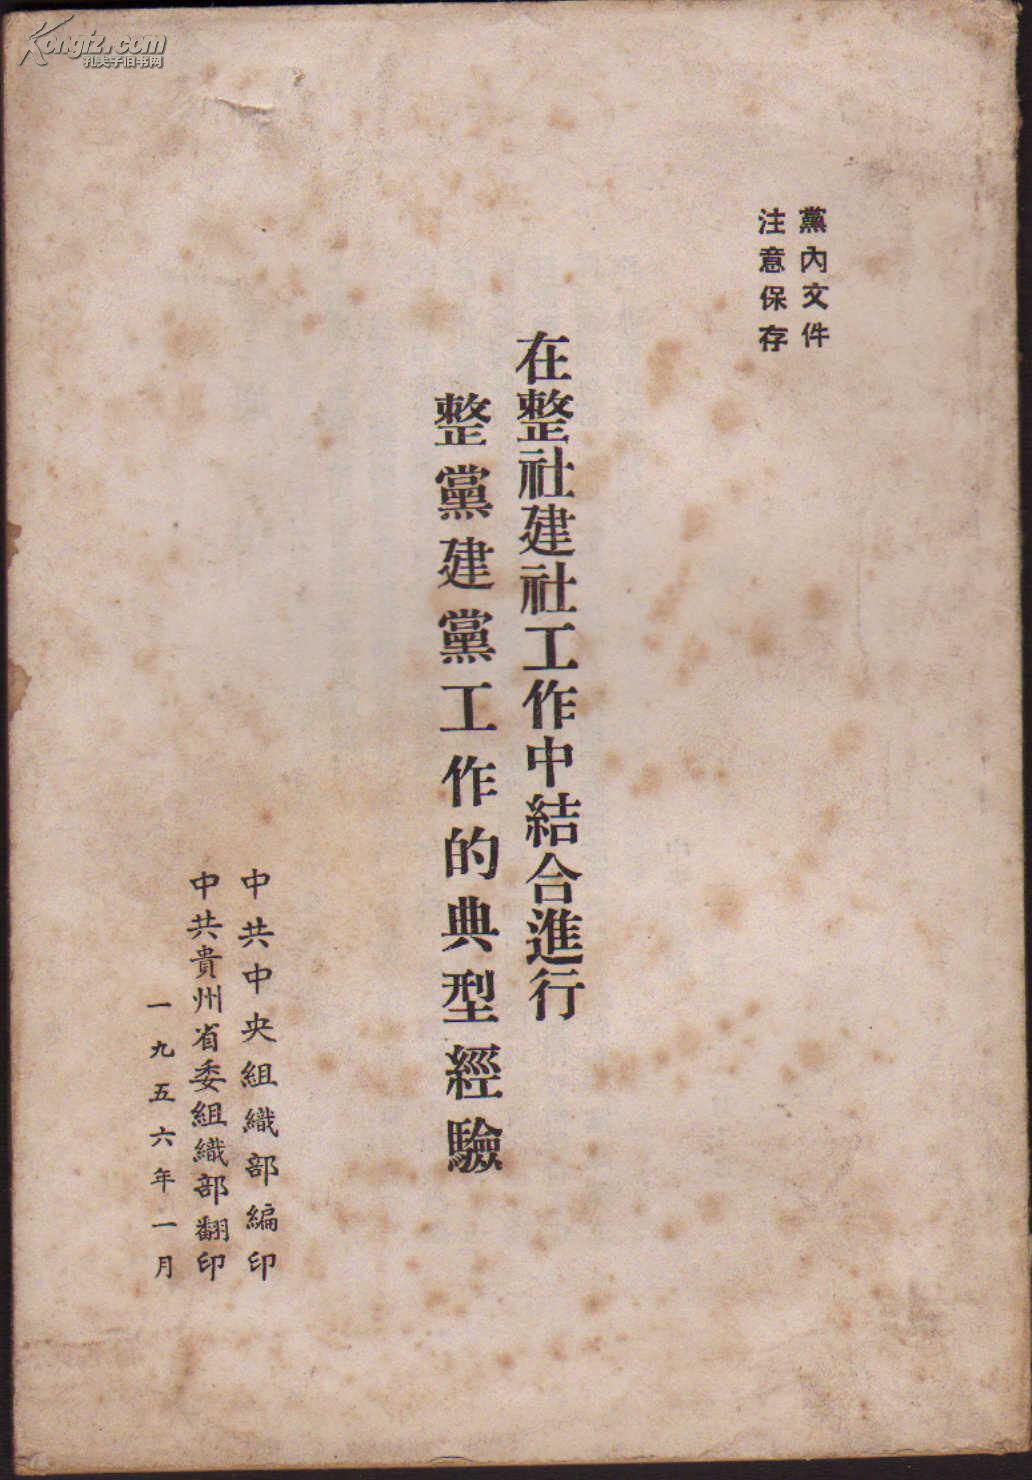 Kongfz.com
孔夫子旧书网
黨內文件
注意保存
在整社建社工作中結合進行
整黨建黨工作的典型經驗
中共中央組織部編印
中共貴州省委組織部翻印
一九五六年一月